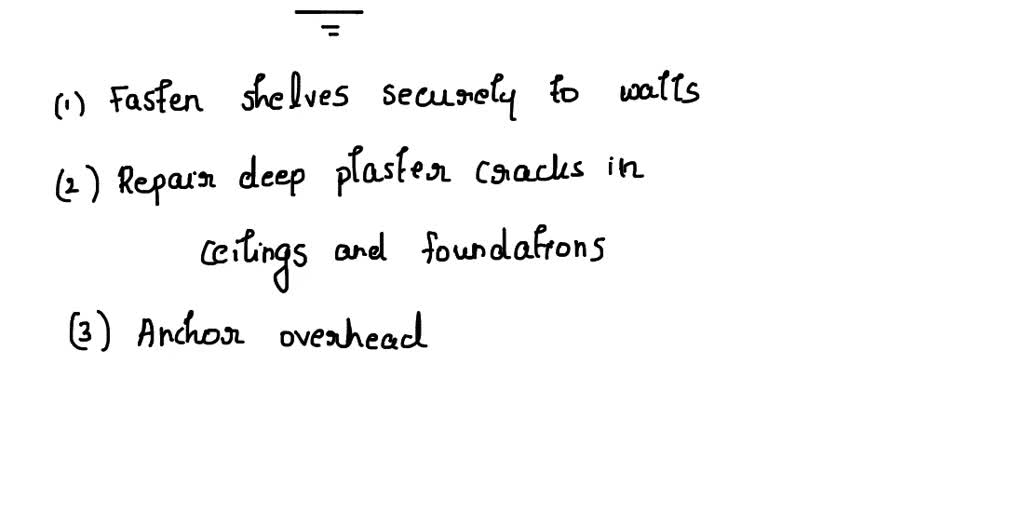 (1) Fasten shelves securely to walls
(2) Repair deep plaster cracks in
ceilings and foundations
(3) Anchor overhead